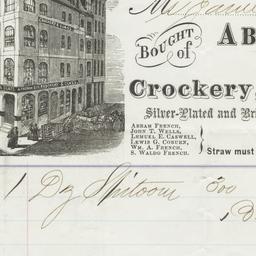 BOUGHT of AB
Crockery,
Silver-Plated and Bri
ABRAM FRENCH,
JOHN T. WELLS,
LEMUEL E. CASWELL,
LEWIS G. COBURN,
WM. A. FRENCH,
S. WALDO FRENCH.
Straw must
1 Dz Spitoons 300